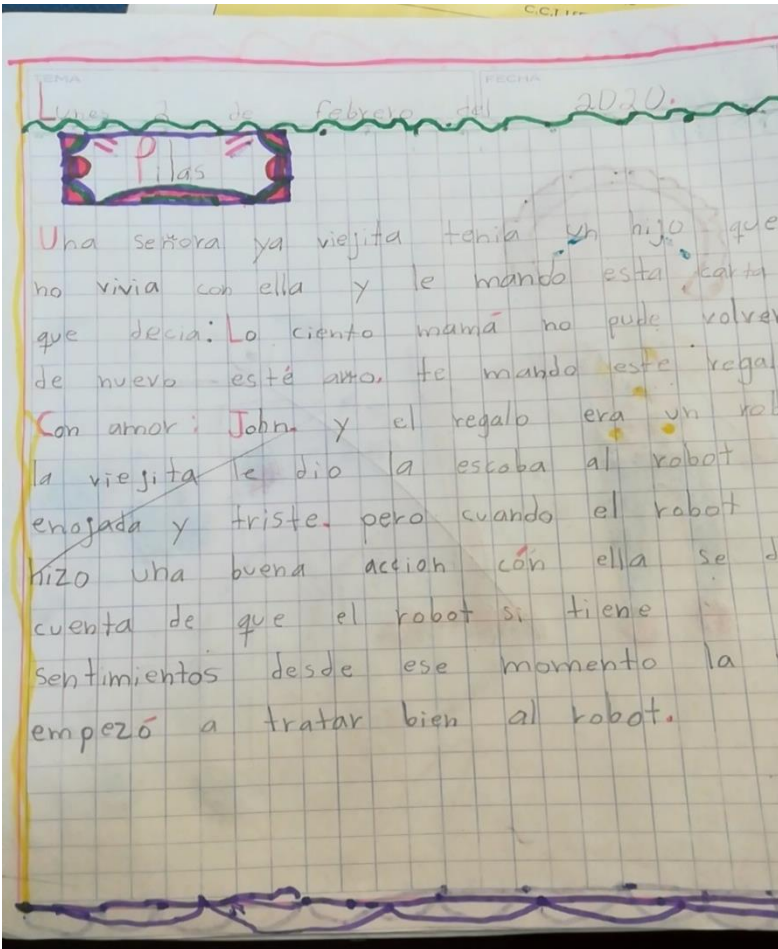 C.C.T
TEMA FECHA
Lunes 2 de febrero del 2020.
Pilas
Una señora ya viejita tenia un hijo que
no vivia con ella y le mando esta carta
que decia: Lo ciento mamá no pude volver
de nuevo esté año. te mando este rega
Con amor: John. y el regalo era un rob
la viejita le dio la escoba al robot
enojada y triste. pero cuando el robot
hizo una buena action con ella se d
cuenta de que el robot si tiene
sentimientos desde ese momento la
empezó a tratar bien al robot.